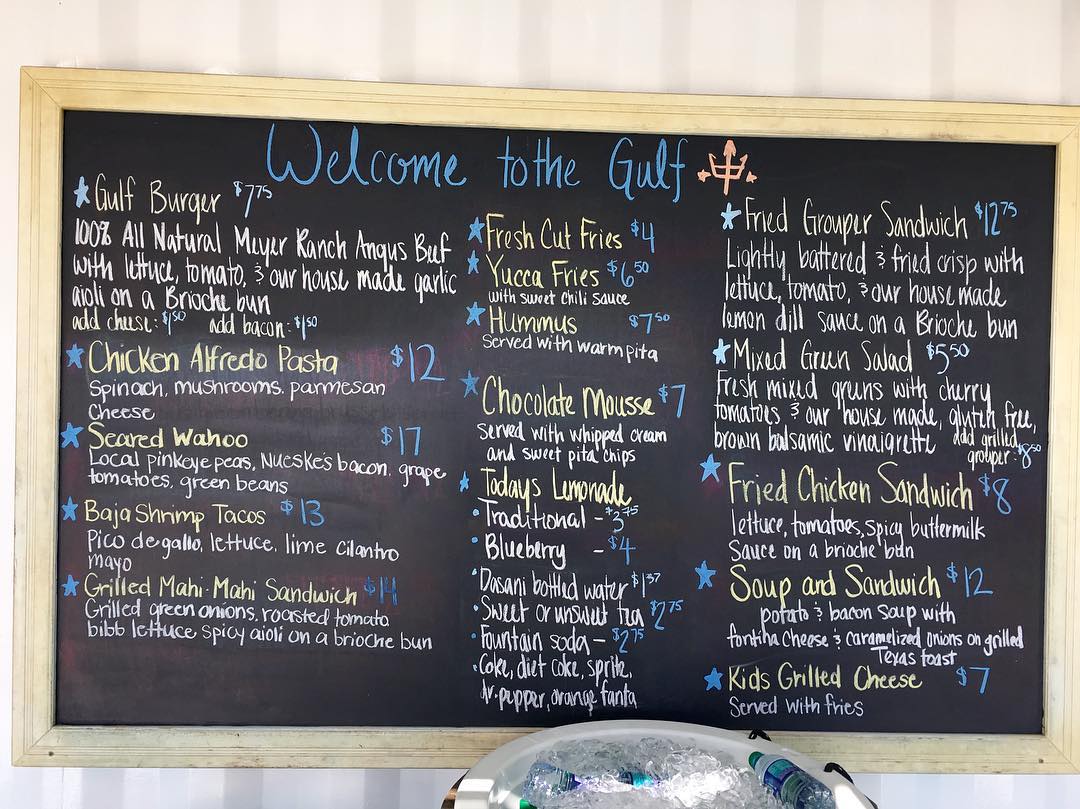 Welcome to the Gulf
Gulf Burger $7.75
100% All Natural Meyer Ranch Angus Beef
with lettuce, tomato, & our house made garlic
aioli on a Brioche bun
add cheese: $1.50 add bacon: $1.50
Chicken Alfredo Pasta $12
Spinach, mushrooms, parmesan
Cheese
Seared Wahoo $17
Local pinkeye peas, Nueske's bacon, grape
tomatoes, green beans
Baja Shrimp Tacos $13
Pico de gallo, lettuce, lime cilantro
mayo
Grilled Mahi-Mahi Sandwich $14
Grilled green onions, roasted tomato
bibb lettuce spicy aioli on a brioche bun
Fresh Cut Fries $4
Yucca Fries $6.50
with sweet chili sauce
Hummus $7.50
Served with warm pita
Chocolate Mousse $7
Served with whipped cream
and sweet pita chips
Todays Lemonade
Traditional - $3.75
Blueberry - $4
Dasani bottled water $1.37
Sweet or unsweet tea $2.75
Fountain soda - $2.75
Coke, diet coke, sprite,
dr. pepper, orange fanta
Fried Grouper Sandwich $12.75
Lightly battered & fried crisp with
lettuce, tomato, & our house made
lemon dill sauce on a Brioche bun
Mixed Green Salad $5.50
Fresh mixed greens with cherry
tomatoes & our house made, gluten free,
brown balsamic vinaigrette add grilled
grouper: $8.50
Fried Chicken Sandwich $8
lettuce, tomatoes, spicy buttermilk
Sauce on a brioche bun
Soup and Sandwich $12
potato & bacon soup with
fontina cheese & caramelized onions on grilled
Texas toast
Kids Grilled Cheese $7
Served with fries